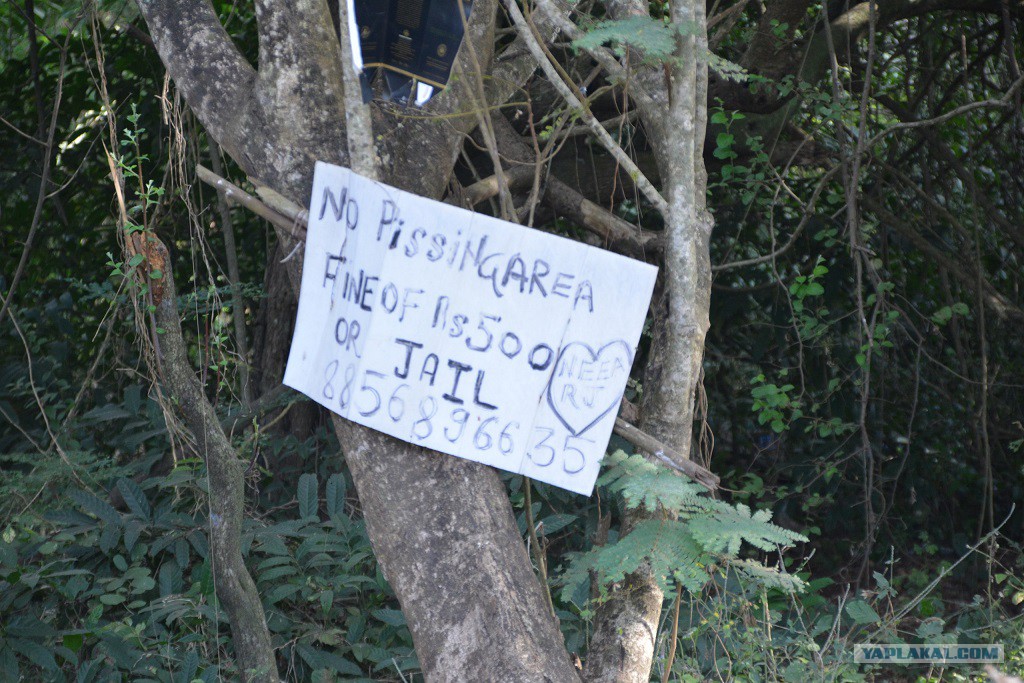 No PissiNG AREA
FINE OF Rs 500
OR JAIL
8856896635
NEERJ
YAPLAKAL.COM